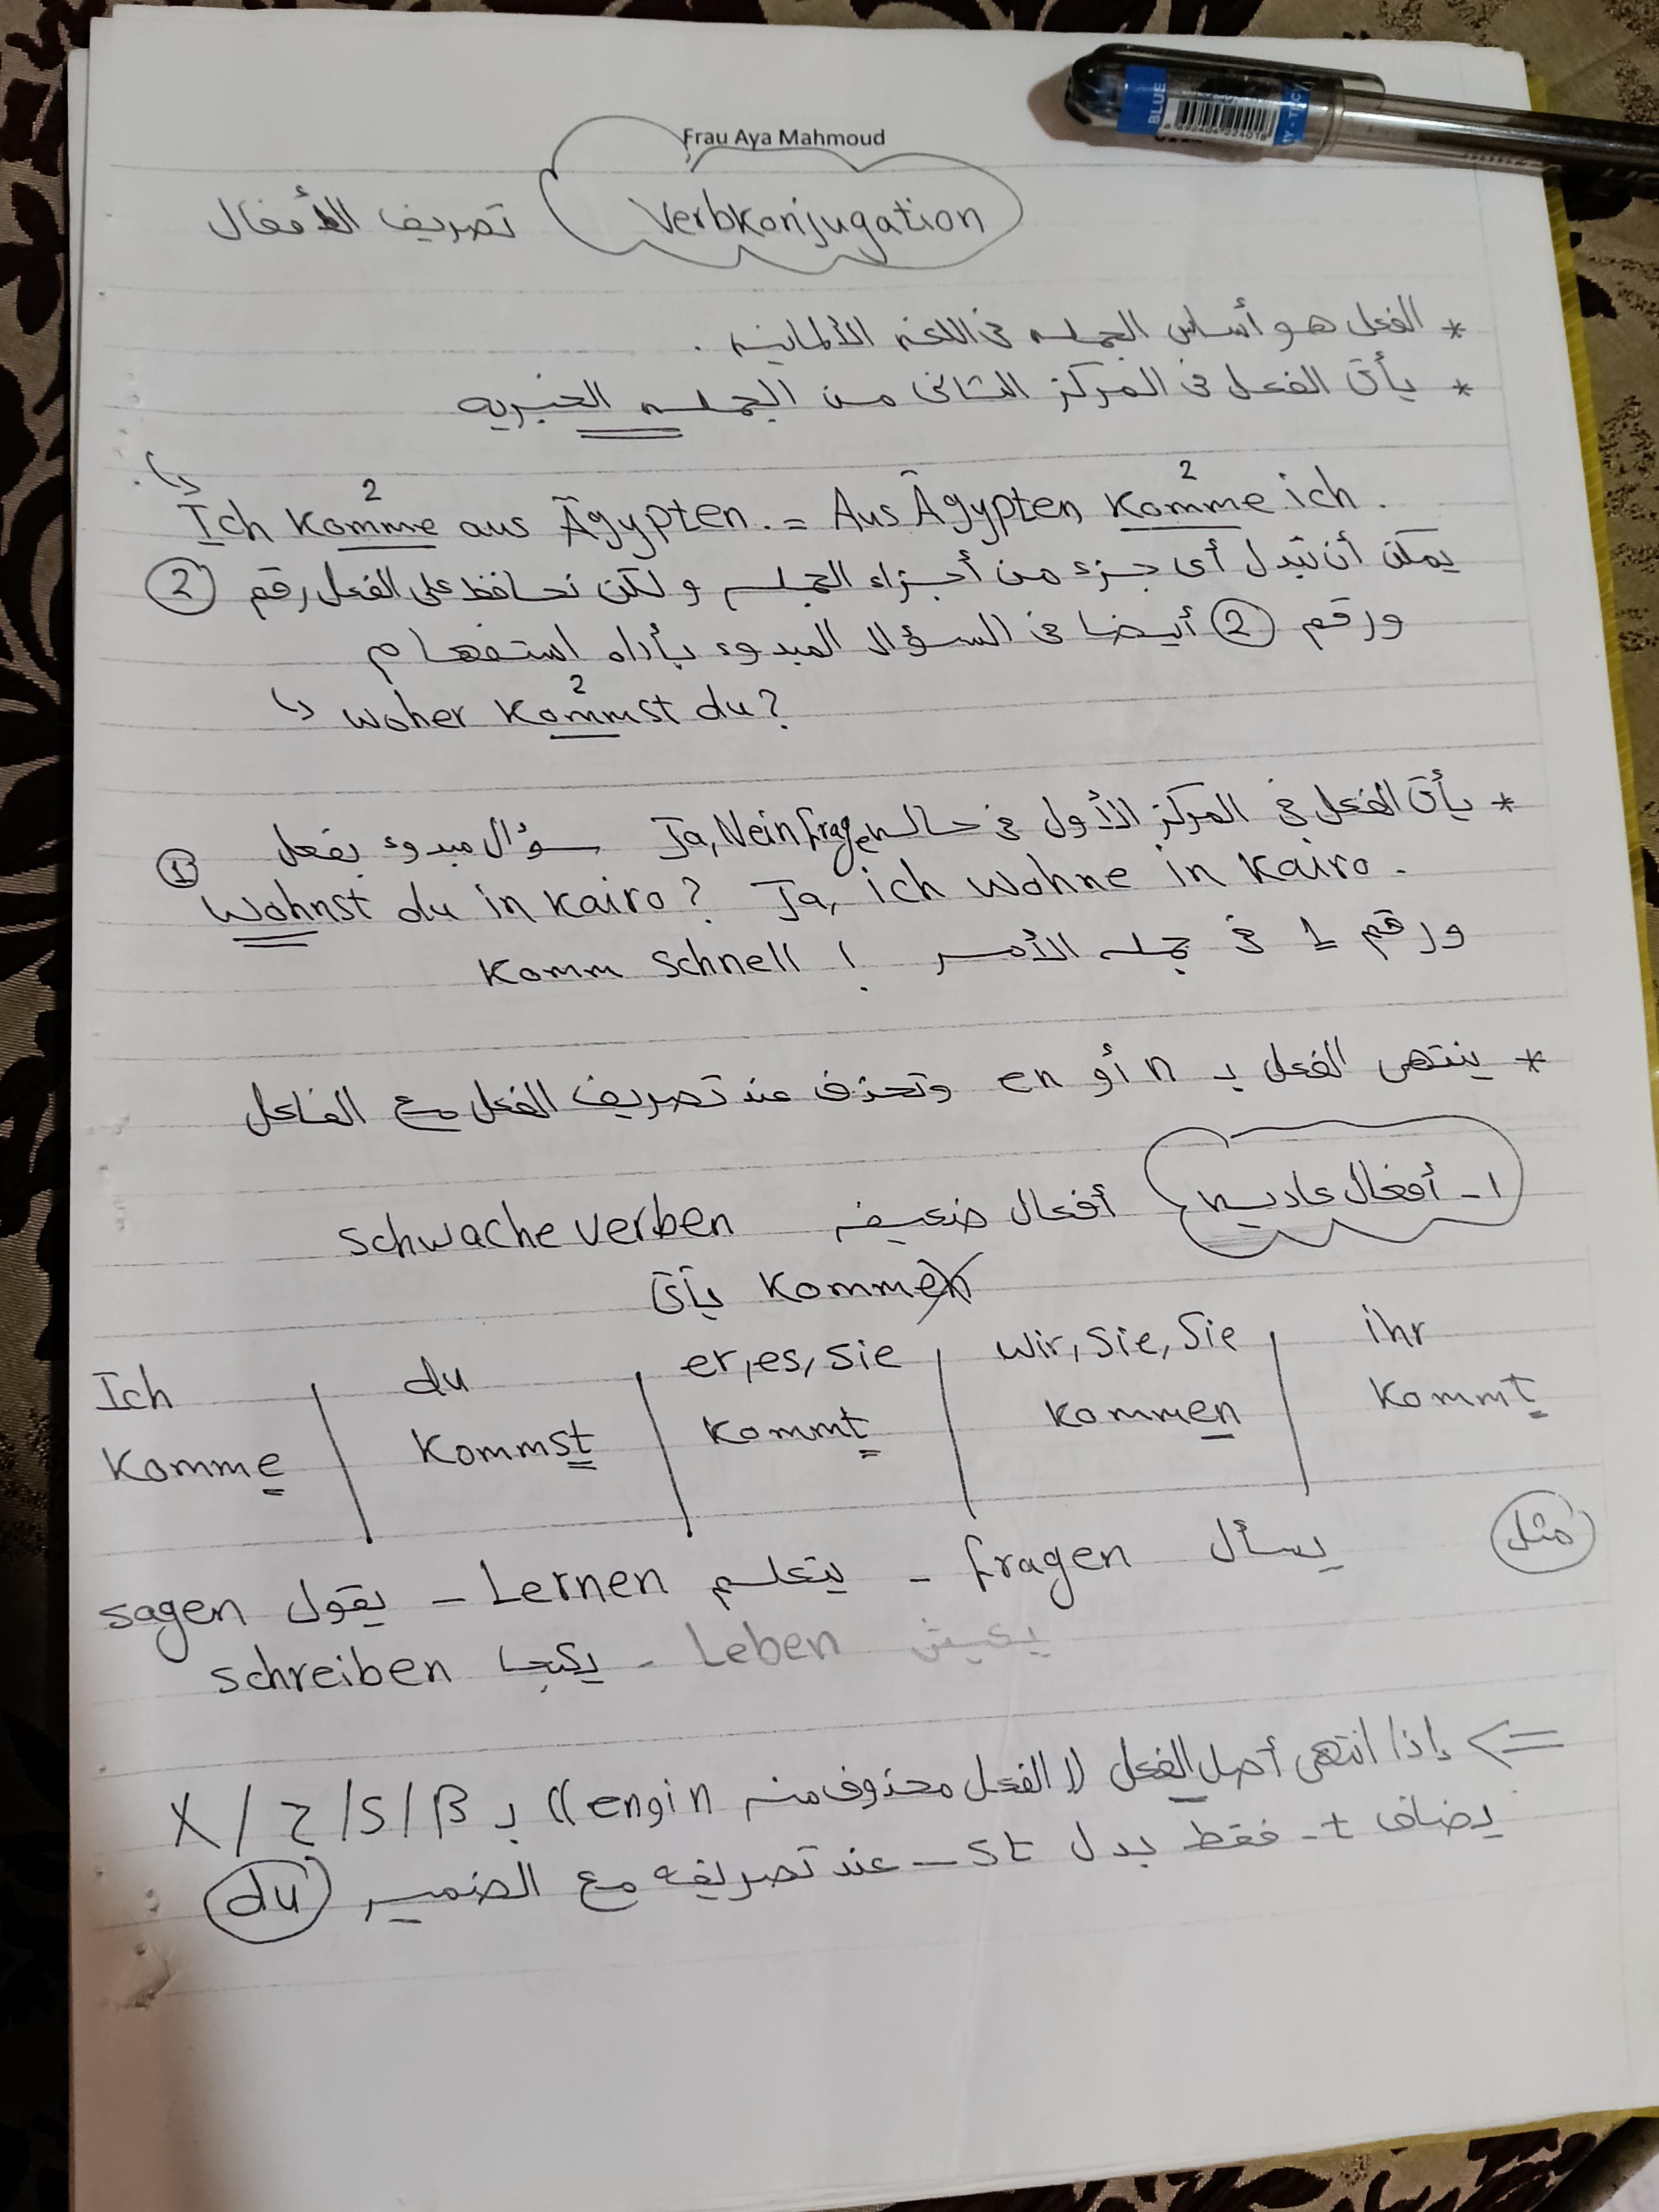 Frau Aya Mahmoud
BLUE
Verbkonjugation تصريف الأفعال
* الفعل هو أساس الجمله فى اللغه الألمانيه .
* يأتى الفعل فى المركز الثانى من الجمله الخبريه
2 2
Ich komme aus Ägypten. = Aus Ägypten komme ich.
يمكن أن نبدل أى جزء من أجزاء الجمله ولكن نحافظ على الفعل رقم 2
ورقم 2 أيضا فى السؤال المبدوء بأداه استفهام
2
↳ woher kommst du?
* يأتى الفعل فى المركز الأول فى حاله Ja, Nein fragen سؤال مبدوء بفعل
1
Wohnst du in Kairo? Ja, ich wohne in Kairo.
ورقم 1 فى جمله الأمر Komm schnell !
* ينتهى الفعل بـ n أو en وتحذف عند تصريف الفعل مع الفاعل
١- أفعال عاديه أفعال ضعيفه schwache verben
kommen يأتى
Ich du er, es, sie wir, Sie, Sie ihr
Komme Kommst kommt kommen kommt
مثل
sagen يقول - Lernen يتعلم - fragen يسأل
schreiben يكتب - Leben يعيش
=> إذا انتهى أصل الفعل (( الفعل محذوف منه n او en )) بـ X / z / s / β
يضاف t- فقط بدل st- عند تصريفه مع الضمير du